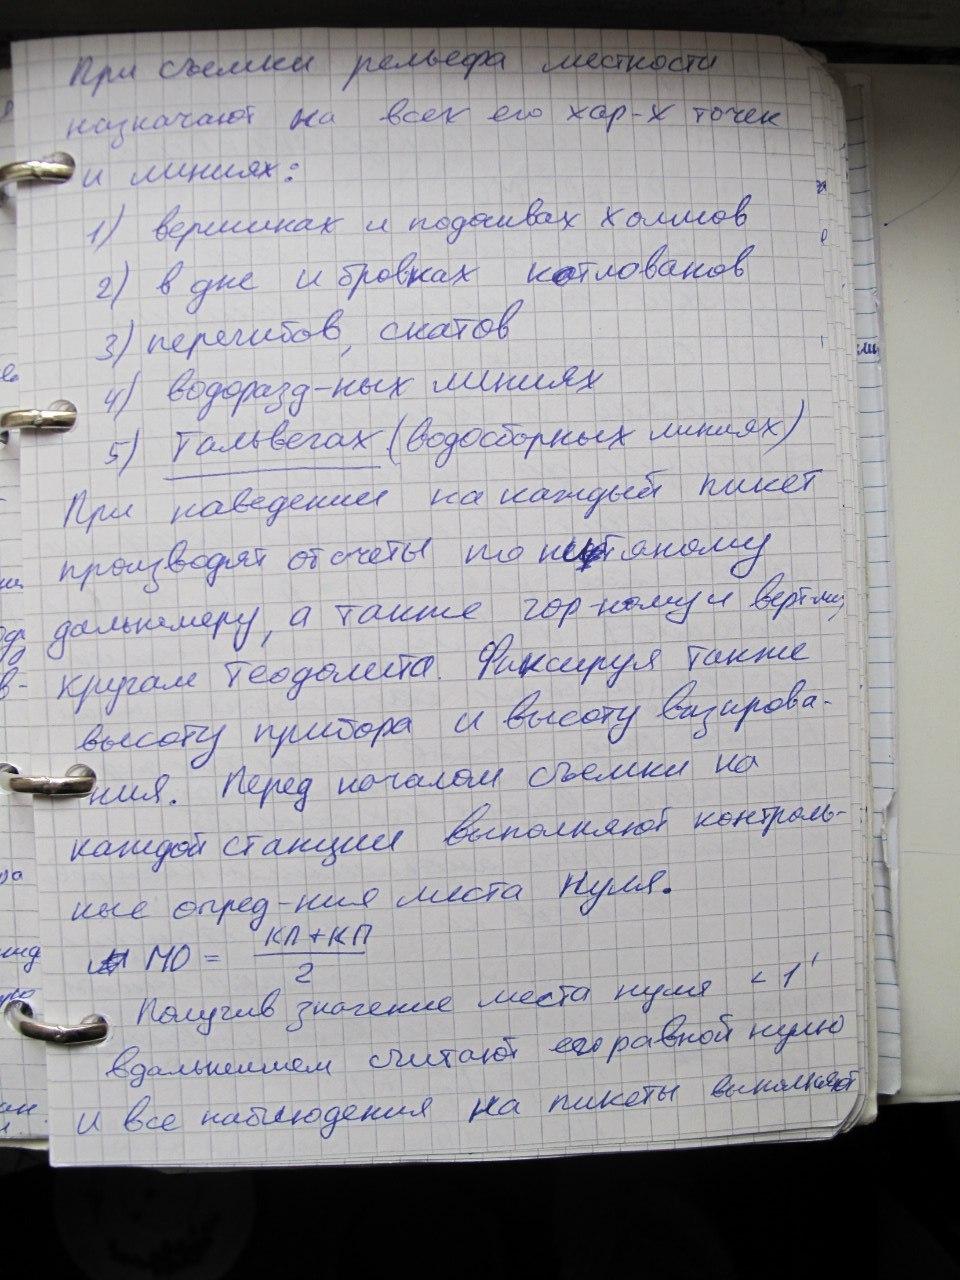 При съемки рельефа местности
назначают на всех его хар-х точек
и линиях:
1) вершинах и подошвах холмов
2) в дне и бровках котлованов
3) перегибов, скатов
4) водоразд-ных линиях
5) Тальвегах (водосборных линиях)
При наведении на каждый пикет
производят отсчеты по нитяному
дальнемеру, а также гор-ному и верт-му
кругам теодолита. Фиксируя также
высоту прибора и высоту визирова-
ния. Перед началом съемки на
каждой станции выполняют контроль-
ные опред-ния места нуля.
МО = КЛ+КП
2
Получив значение места нуля < 1'
вдальнейшем считают его равной нулю
и все наблюдения на пикеты выполняют